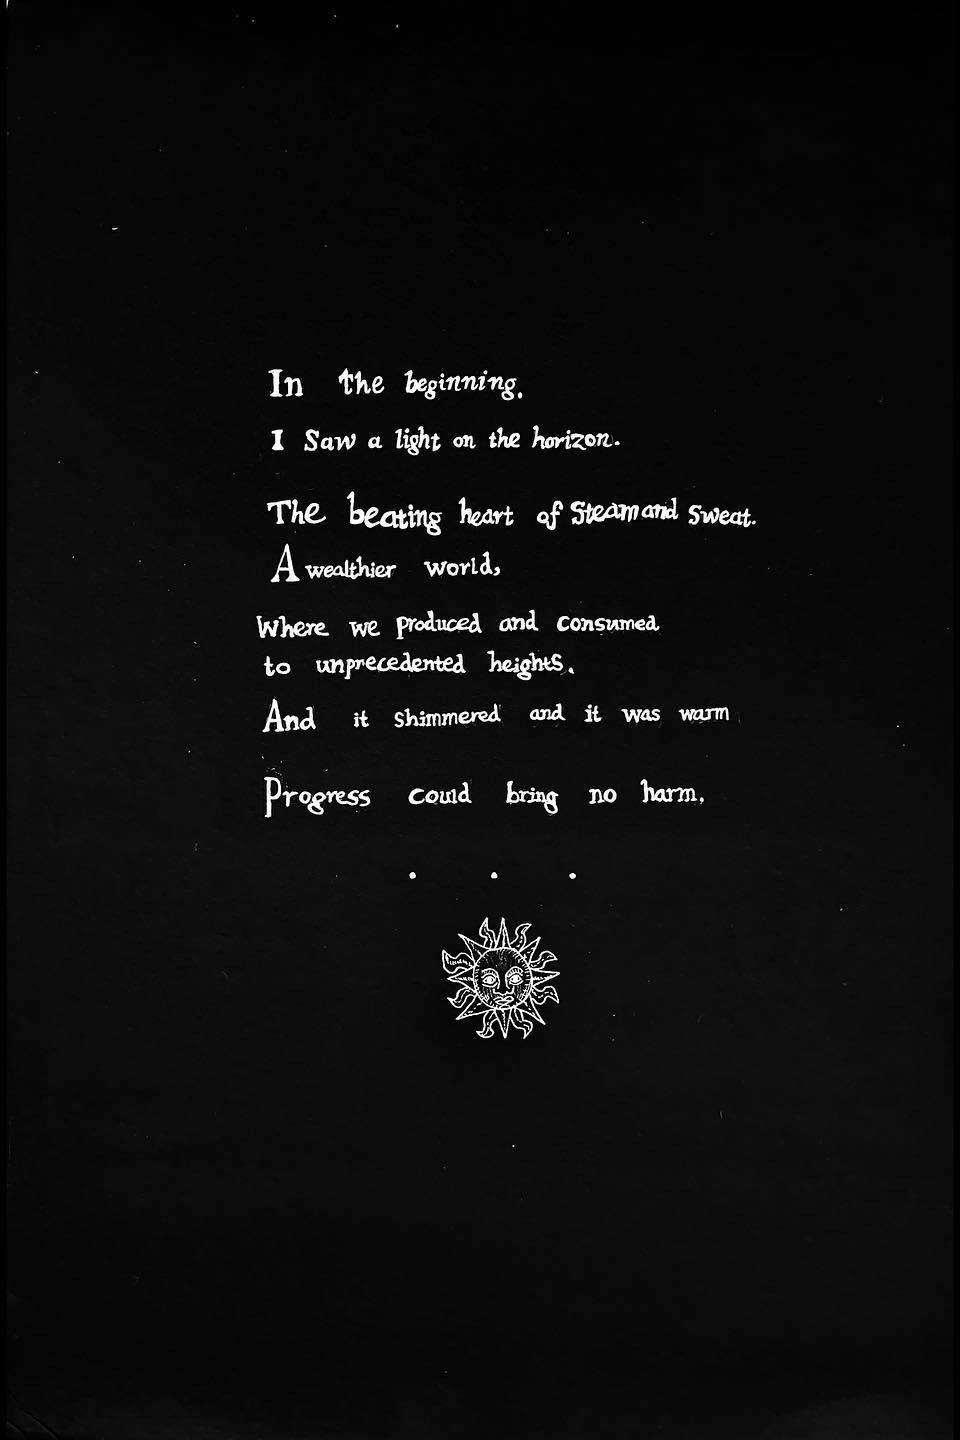 In the beginning.
I Saw a light on the horizon.
The beating heart of Steam and Sweat.
A wealthier world,
Where we produced and consumed
to unprecedented heights.
And it shimmered and it was warm
Progress could bring no harm.
. . .